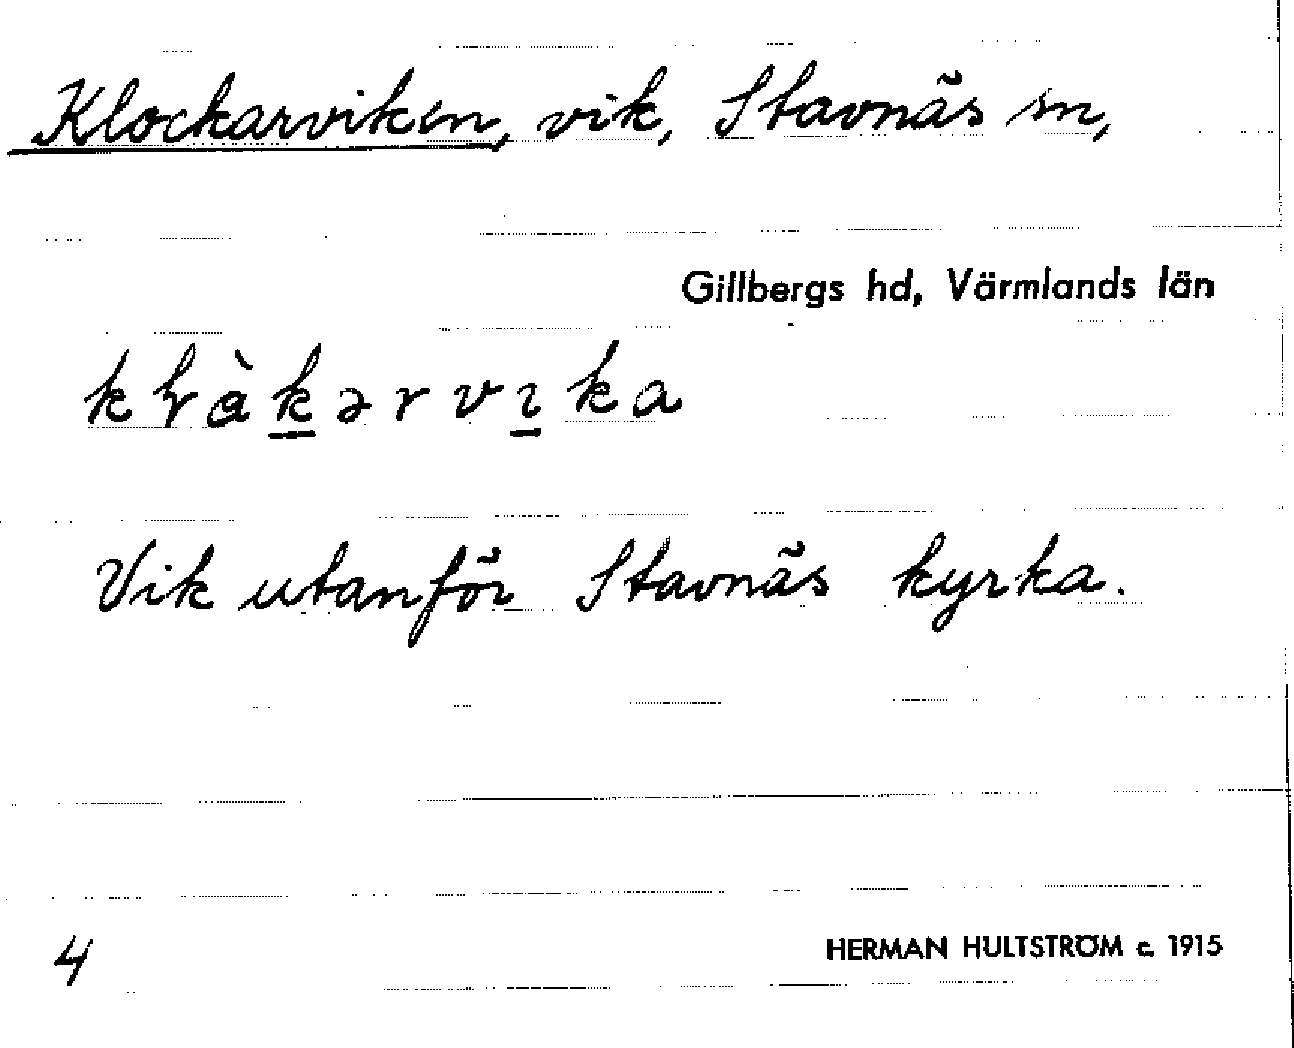 Klockarviken, vik, Stavnäs sn,
Gillbergs hd, Värmlands län
kɽὰk̲ərvı̲ka
Vik utanför Stavnäs kyrka.
4
HERMAN HULTSTRÖM c. 1915